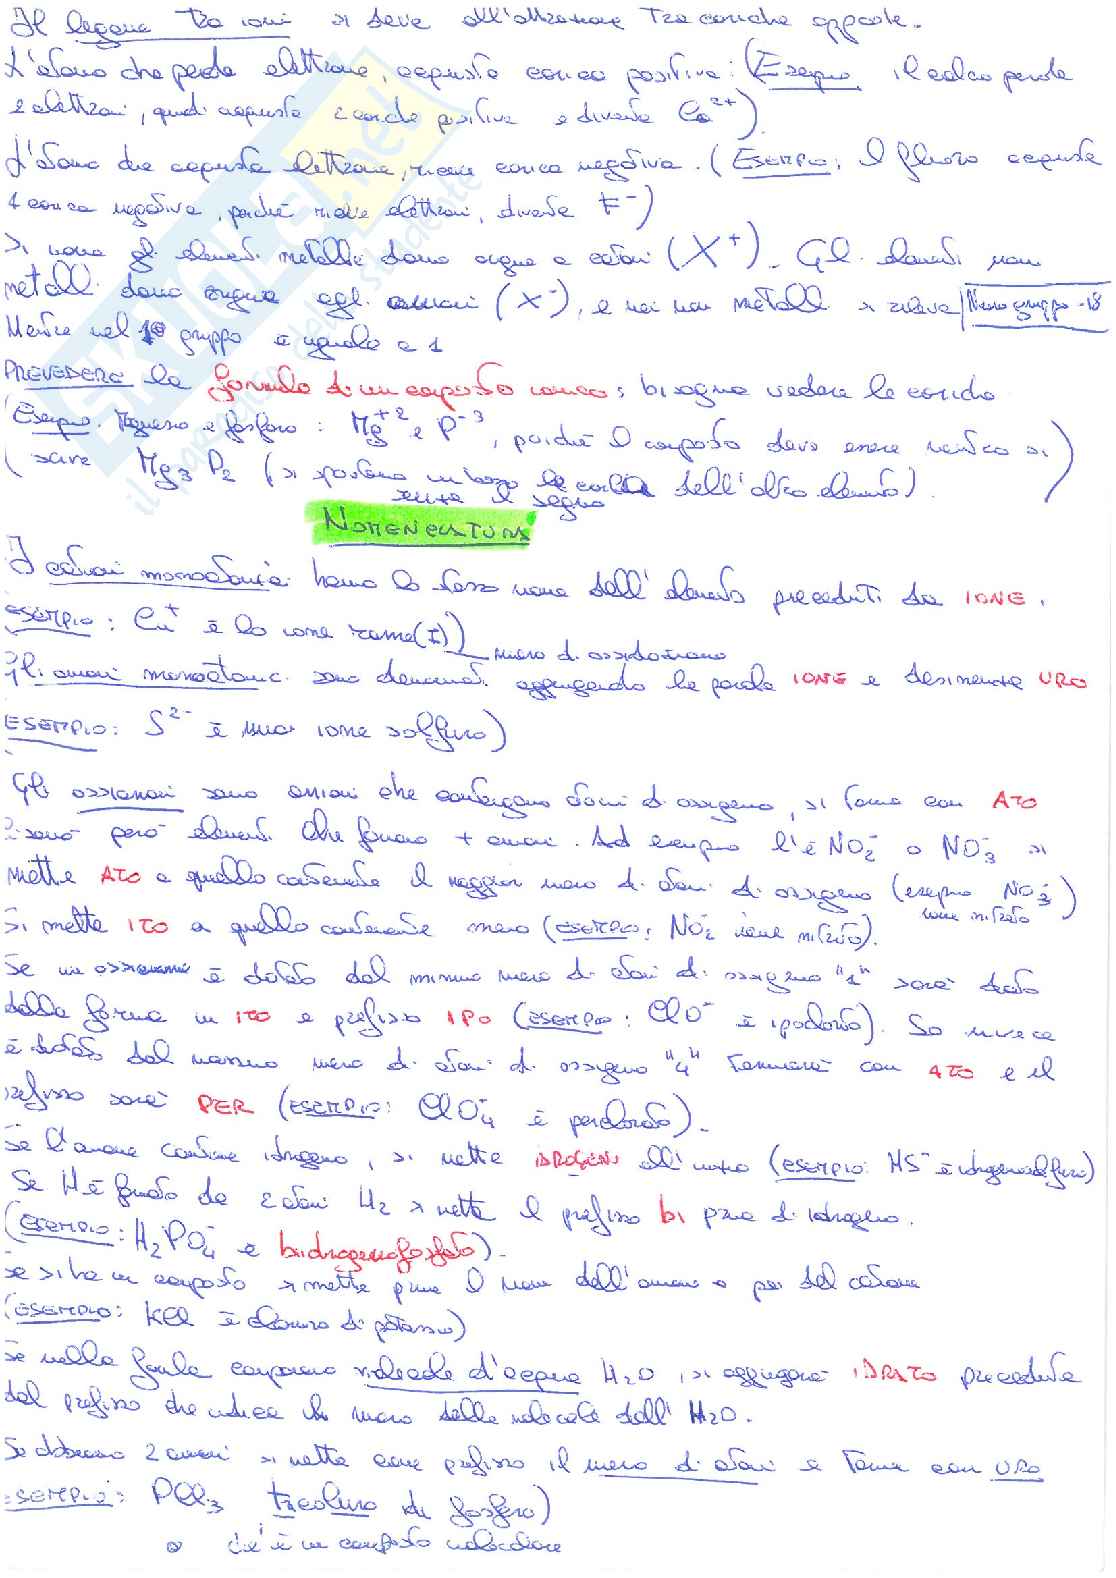 Il legame tra ioni si deve all'attrazione tra cariche opposte.
L'atomo che perde elettrone, acquista carica positiva: (Esempio il calcio perde
2 elettroni, quindi acquista 2 cariche positive e diventa Ca²⁺)
L'atomo che acquista elettrone, riceve carica negativa. (ESEMPIO: il fluoro acquista
1 carica negativa, perché riceve elettroni, diventa F⁻)
Si nota gli elementi metallici danno origine a cationi (X⁺). Gli elementi non
metalli danno origine agli anioni (X⁻), e nei non metalli si rileva Numero gruppo -18
Mentre nel 1° gruppo è uguale a 1
PREVEDERE la formula di un composto ionico: bisogna vedere le cariche
(Esempio. Magnesio e fosforo: Mg⁺² e P⁻³, poiché il composto deve essere neutro si
scrive Mg₃P₂ (si spostano in basso le cariche dell'altro elemento)
senza il segno
NOMENCLATURA
I cationi monoatomici hanno lo stesso nome dell'elemento preceduti da IONE.
ESEMPIO: Cu⁺ è lo ione rame(I)) numero di ossidazione
Gli anioni monoatomici sono denominati aggiungendo la parola IONE e desinenza URO
ESEMPIO: S²⁻ è uno ione solfuro)
Gli ossianioni sono anioni che contengono atomi di ossigeno, si forma con ATO
Ci sono però elementi che formano + anioni. Ad esempio c'è NO₂⁻ o NO₃⁻ si
mette ATO a quello contenente il maggior numero di atomi di ossigeno (esempio NO₃⁻)
ione nitrato
Si mette ITO a quello contenente meno (ESEMPIO: NO₂⁻ ione nitrito).
Se un ossianione è dotato dal minimo numero di atomi di ossigeno "1" sarà dato
dalla forma in ITO e prefisso IPO (ESEMPIO: ClO⁻ è ipoclorito). Se invece
è dotato dal massimo numero di atomi di ossigeno "4" terminerà con ATO e il
prefisso sarà PER (ESEMPIO: ClO₄⁻ è perclorato).
Se l'anione contiene idrogeno, si mette IDROGENO all'inizio (ESEMPIO: HS⁻ è idrogenosolfuro)
Se H è formato da 2 atomi H₂ si mette il prefisso bi prima di idrogeno.
(ESEMPIO: H₂PO₄⁻ è biidrogenofosfato).
Se si ha un composto si mette prima il nome dell'anione e poi del catione
(ESEMPIO: KCl è cloruro di potassio)
Se nella formula compaiono molecole d'acqua H₂O, si aggiungerà IDRATO preceduto
dal prefisso che indica il numero delle molecole dell'H₂O.
Se abbiamo 2 anioni si mette come prefisso il numero di atomi e termina con URO
ESEMPIO: PCl₃ tricloruro di fosforo)
è un composto molecolare